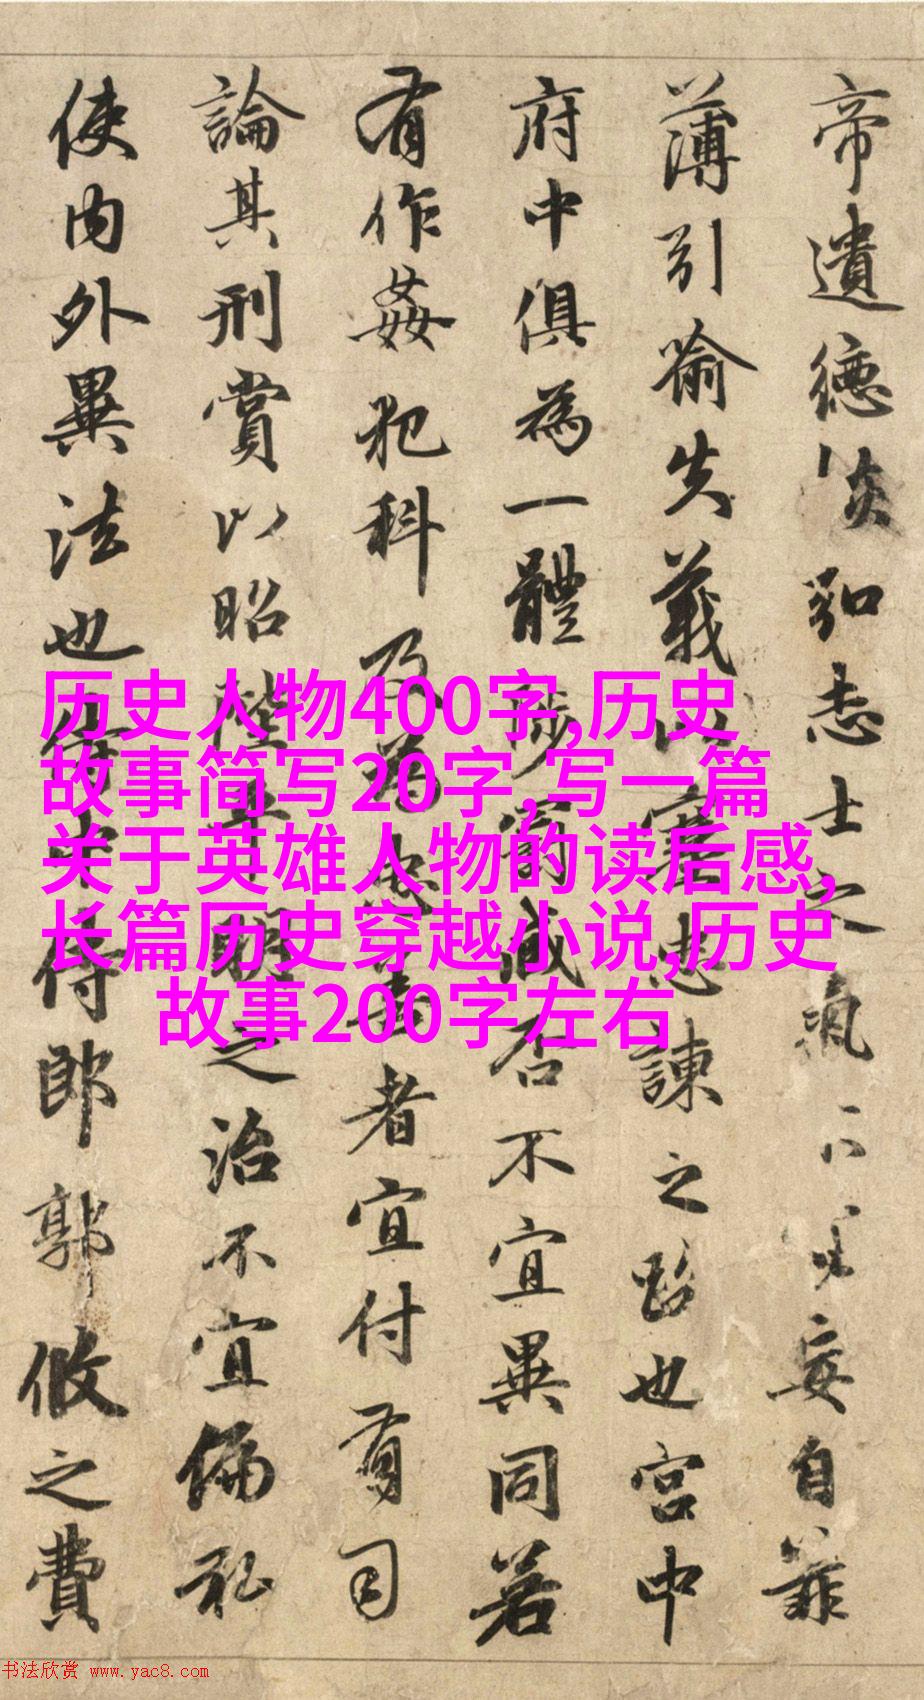 帝遺德恢弘志士之氣不妄自菲
薄引喻失義以塞忠諫之路也宮中
府中俱為一體陟罰臧否不宜異同若
有作姦犯科及為忠善者宜付有司
論其刑賞以昭陛平明之治不宜偏私
使內外異法也侍中侍郎郭攸之費
历史人物400字,历史
故事简写20字,写一篇
关于英雄人物的读后感,
长篇历史穿越小说,历史
故事200字左右
书法欣赏 www.yac8.com